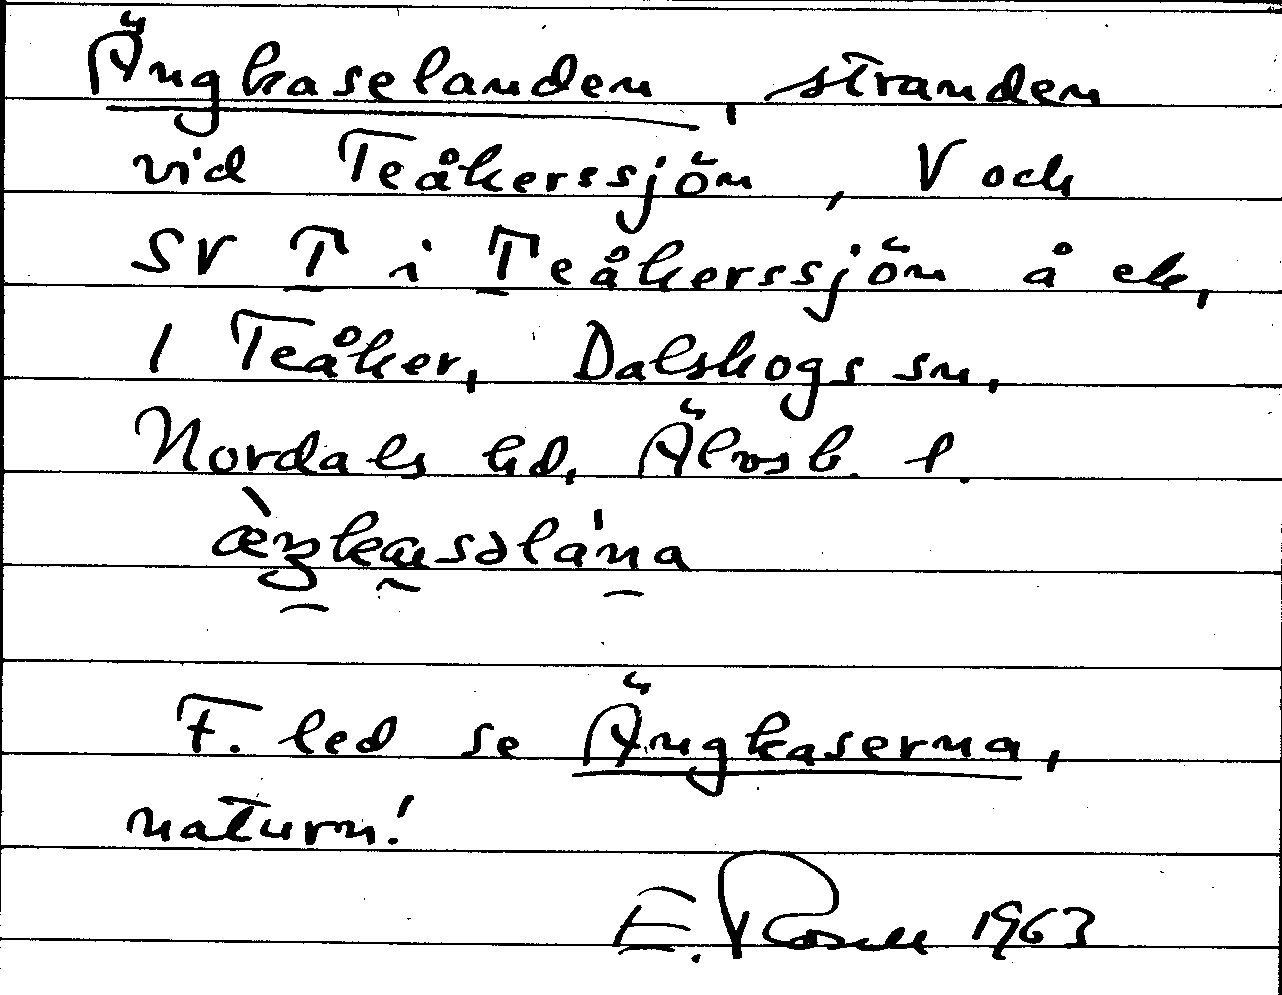 Ängkaselanden, stranden
vid Teåkerssjön, V och
SV T i Teåkerssjön å ek,
1 Teåker, Dalskogs sn,
Nordals hd, Älvsb. l.
F. led se Ängkaserna,
naturn!
E. Rosell 1963